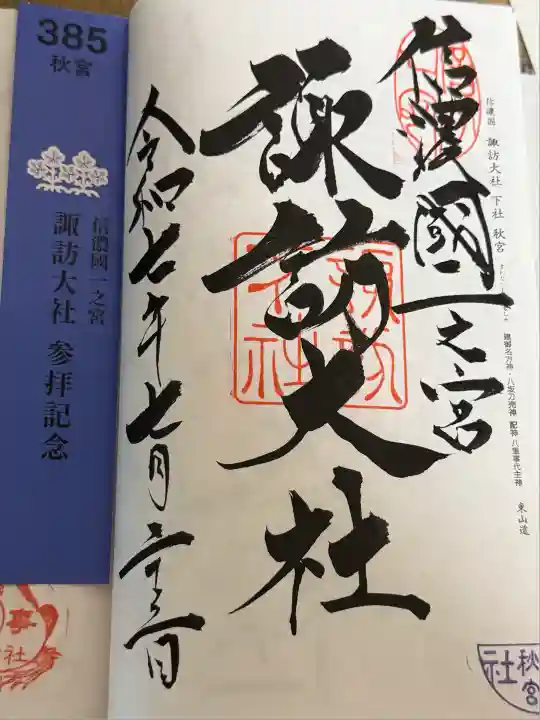 信濃国 諏訪大社 下社 秋宮
建御名方神・八坂刀売神 配神 八重事代主神
東山道
信濃國一之宮
諏訪大社
諏訪大社
令和七年七月二十三日
秋宮
社
385
秋宮
信濃國一之宮
諏訪大社 参拝記念
社